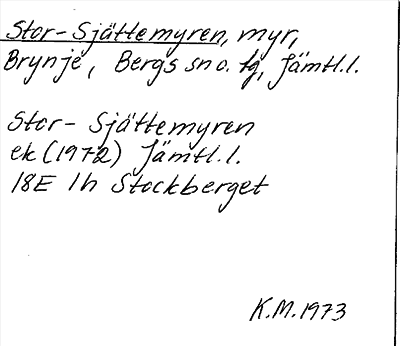 Stor-Sjättemyren, myr,
Brynje, Bergs sn o. tg, Jämtl.l.
Stor- Sjättemyren
ek (1972) Jämtl.l.
18E 1h Stockberget
K.M.1973